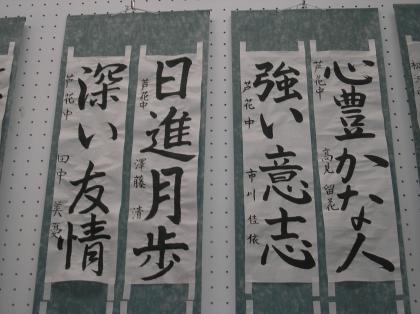 心豊かな人
芦花中
高見 留花
強い意志
芦花中
市川 佳依
日進月歩
芦花中
澤藤 清
深い友情
芦花中
田中 美